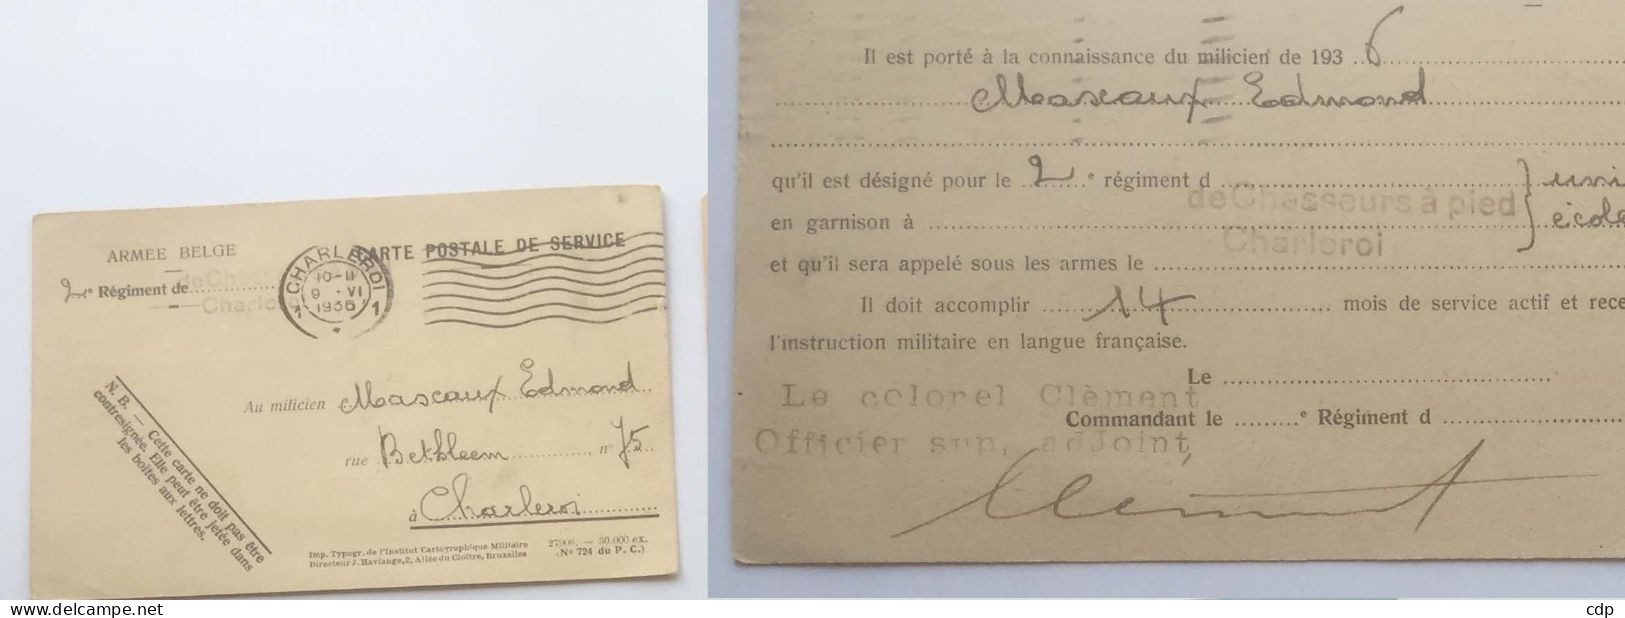 ARMEE BELGE
CARTE POSTALE DE SERVICE
2e Régiment de
de Chas
Charlero
CHARLEROI
10-11
9 - VI
1936
1 1
Au milicien Mascaux Edmond
rue Bethleem n° 75
à Charleroi
N. B. — Cette carte ne doit pas être
contresignée. Elle peut être jetée dans
les boîtes aux lettres.
Imp. Typogr. de l'Institut Cartographique Militaire
Directeur J. Havlange, 2, Allée du Cloître, Bruxelles
27908. — 30.000 ex.
(N° 724 du P. C.)
Il est porté à la connaissance du milicien de 193 6
Mascaux Edmond
qu'il est désigné pour le 2e régiment d
de Chasseurs à pied
en garnison à
Charleroi
et qu'il sera appelé sous les armes le
Il doit accomplir 14 mois de service actif et rece
l'instruction militaire en langue française.
Le
Le colorel Clèment
Commandant le e Régiment d
Officier sup. adJoint,
Clément
cdp